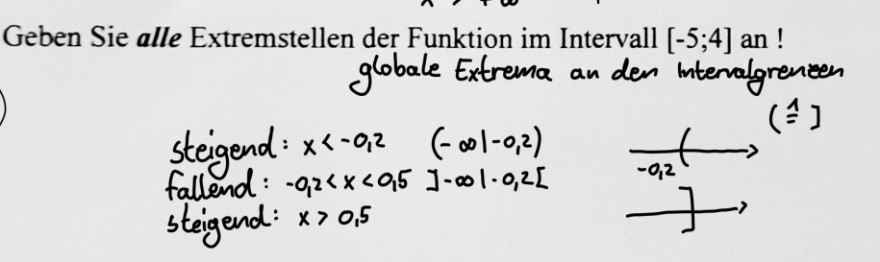 Geben Sie alle Extremstellen der Funktion im Intervall [-5;4] an !
globale Extrema an den Intervalgrenzen
( ≙ ]
steigend: x < -0,2 (-∞|-0,2)
-0,2
fallend: -0,2 < x < 0,5 ]-∞|-0,2[
steigend: x > 0,5